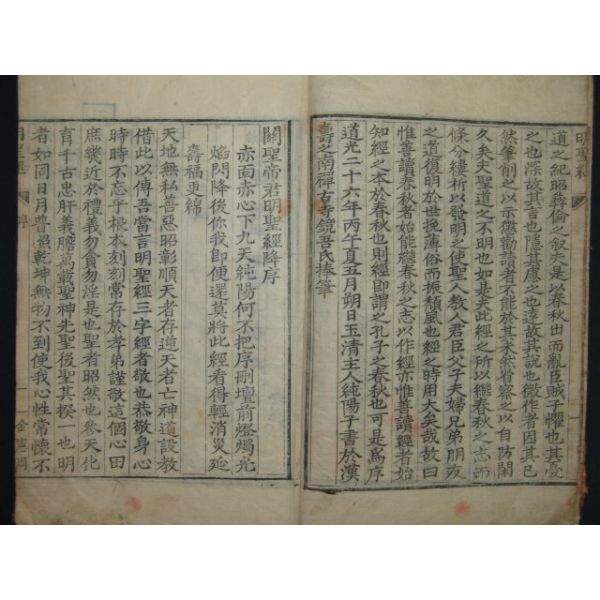 明聖經
道之紀昭彛倫之叙夫是以春秋出而亂臣賊子懼也其憂
之也深故其言也隱其慮之也遠故其說也微作者因其已
然筆削之以示懲勸讀者不能於其未然省察之以自防閑
久矣夫聖道之不明也如是夫此經之所以繼春秋之志而
條分縷析以發明之使聖人教人君臣父子夫婦兄弟朋友
之道復明於世挽薄俗而振頹風也經之時用大矣哉故曰
惟善讀春秋者始能繼春秋之志以作經亦惟善讀經者始
知經之本於春秋也則經即謂之孔子之春秋也可是爲序
道光二十六年丙午夏五月朔日玉清主人純陽子書於漢
壽之南禪古寺鏡吾氏捧筆
關聖帝君明聖經降序
赤面赤心下九天純陽何不把序刪壇前燈燭光
焰閃降後你我即便還莫將此經看得輕消災延
壽福更綿
天地無私善惡昭彰順天者存逆天者亡神道設教
借此以傳吾當言明聖經三字經者敬也恭敬身心
時時不忘乎根本刻刻常存於孝弟謹敬這個心田
庶幾近於禮義勿貪勿淫是也聖者昭然也參天化
育千古忠肝義膽萬載聖神先聖後聖其揆一也明
者如同日月普照乾坤無物不到使我心性常懷不
明聖經
序
一